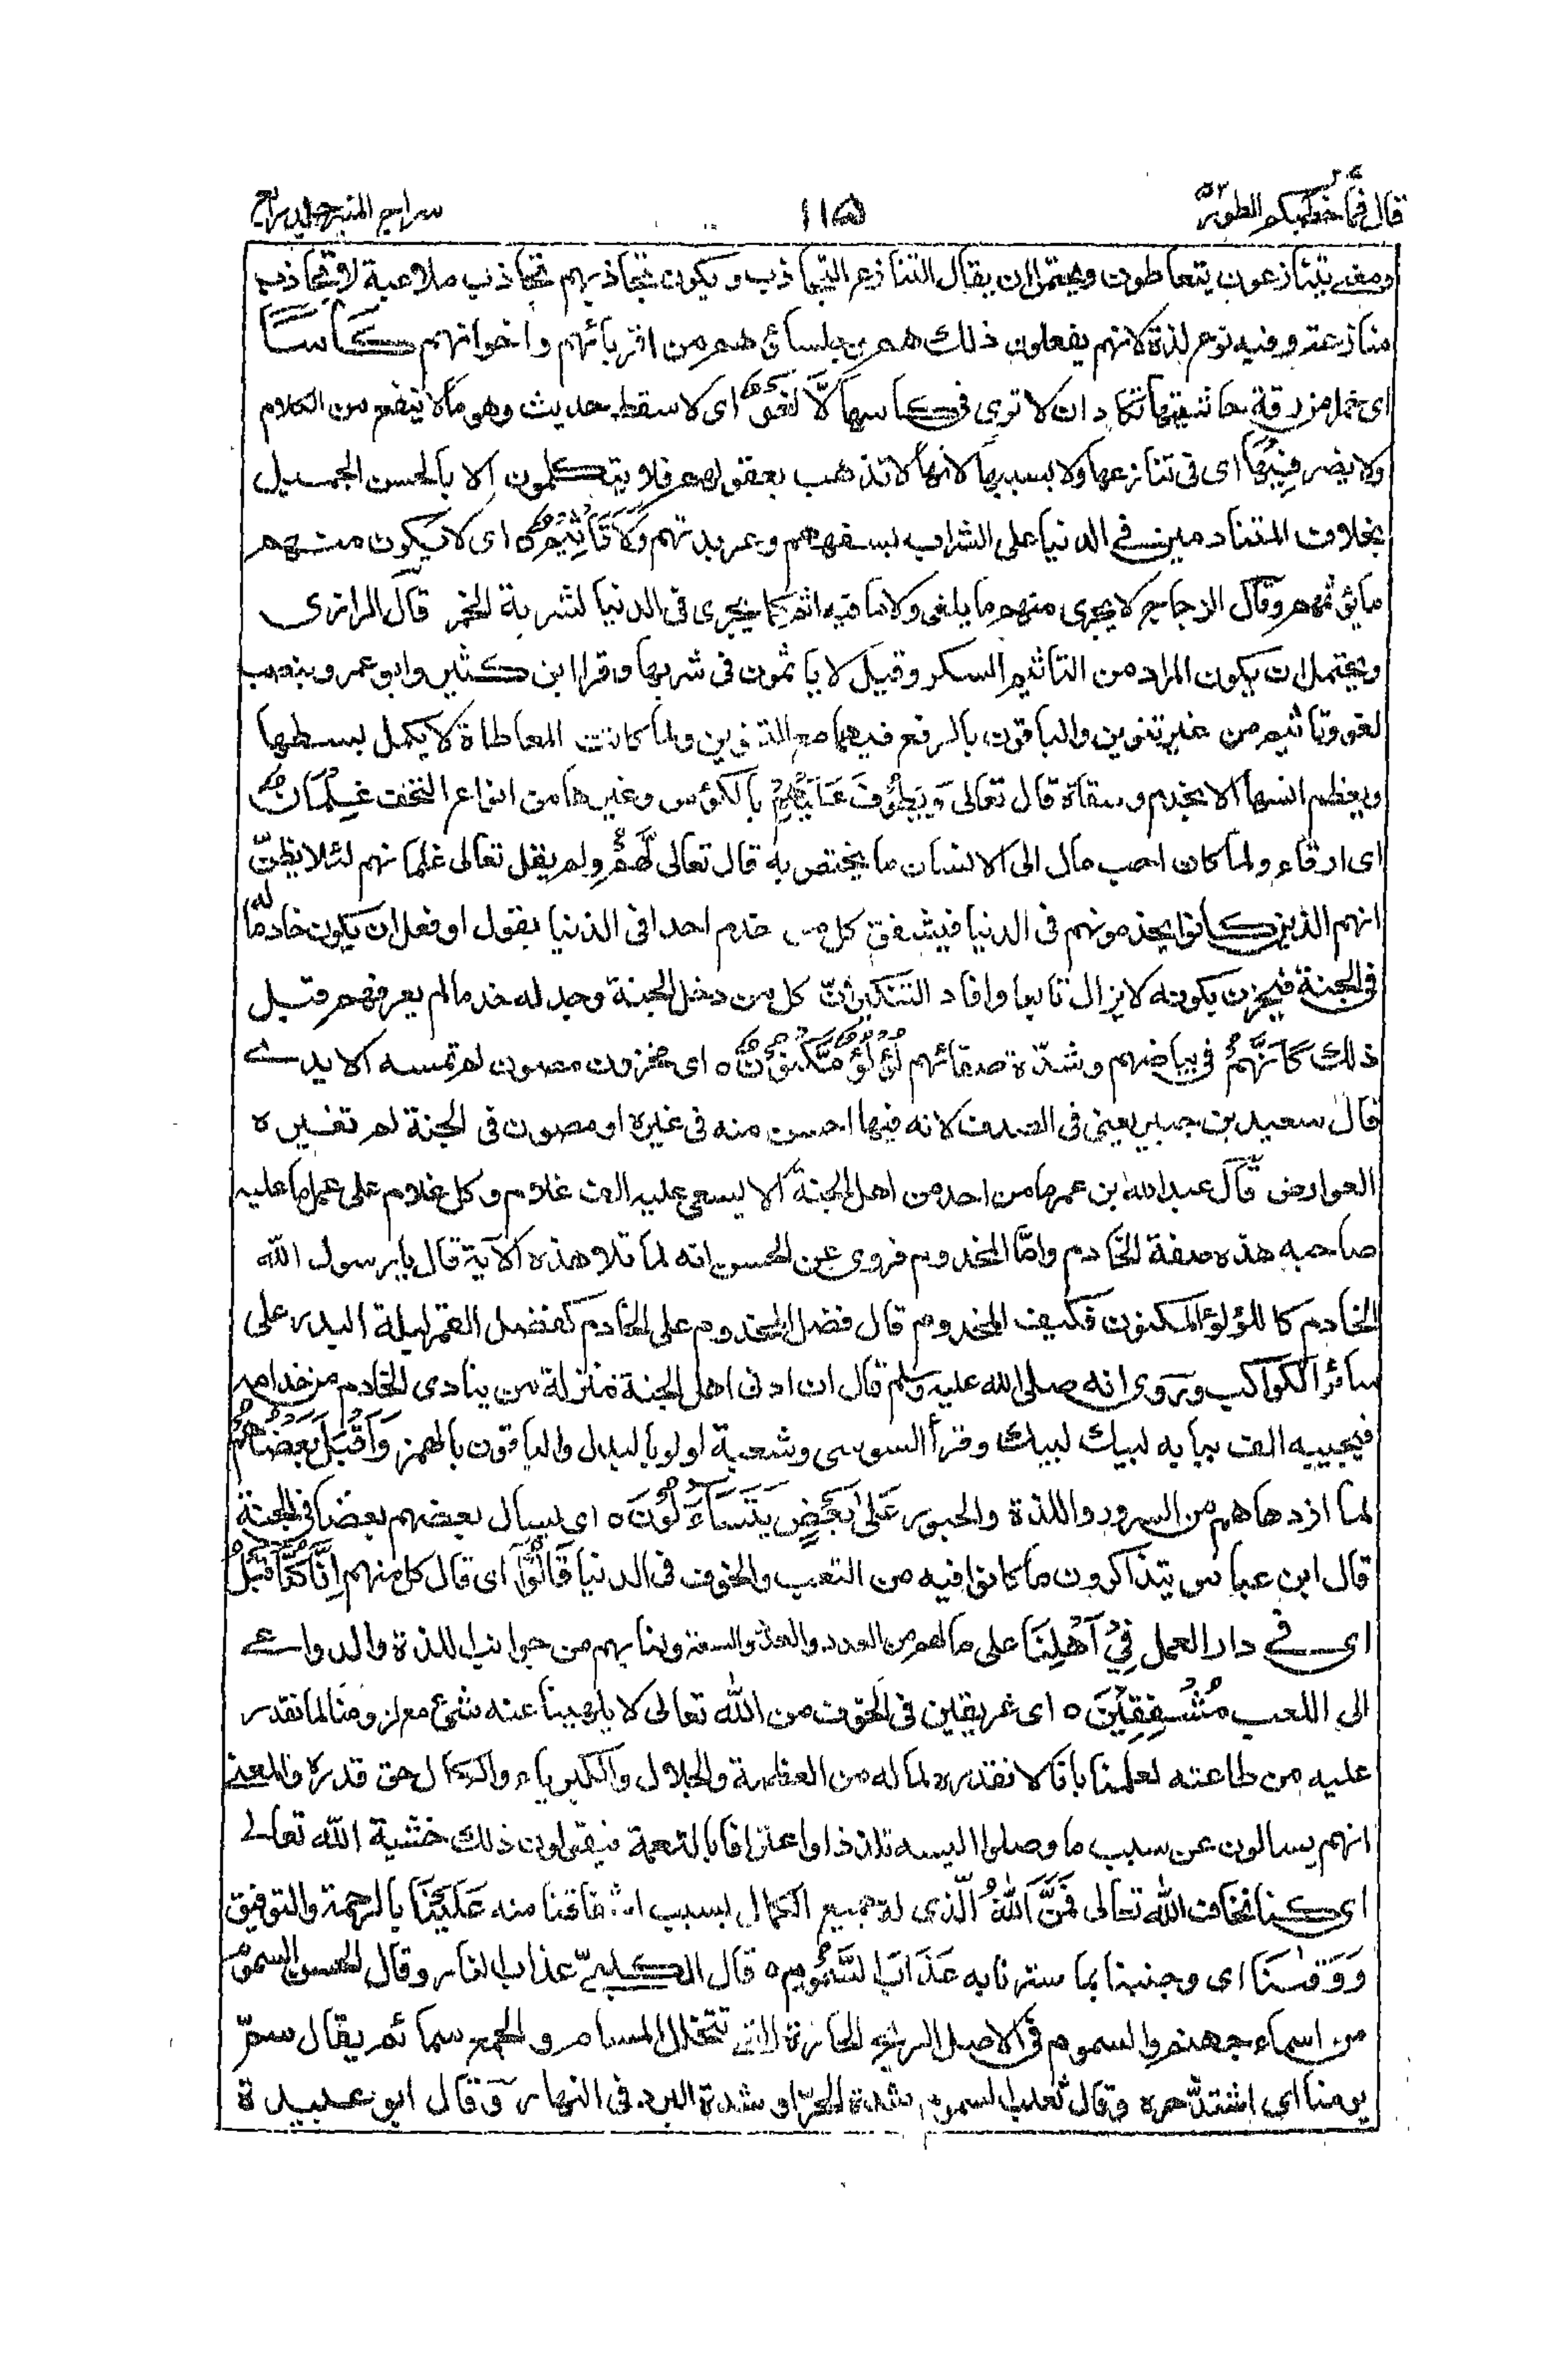 قال فما خطبكم الطور ٥٢
١١٥
سراج المنير جلد رابع
ومعنى يتنازعون يتعاطون ويحتمل ان يقال التنازع التجاذب ويكون تجاذبهم تجاذب ملاعبة لا تجاذب
منازعة وفيه نوع لذة لانهم يفعلون ذلك هم وجلساؤهم من اقربائهم واخوانهم كَأْسًا
اى خمرا من رقة حاشيتها تكاد ان لا ترى فى كاسها لَّا لَغْوٌ اى لا سقط حديث وهو ما لا ينفع من الكلام
ولا يضر فِيْهَا اى فى تنازعها ولا بسببها لانها لا تذهب بعقولهم فلا يتكلمون الا بالحسن الجميل
بخلاف المتنادمين فى الدنيا على الشراب بسفههم وعربدتهم وَلَا تَأْثِيْمٌ ٥ اى لا يكون منهم
ما يؤثمهم وقال الزجاج لا يجرى منهم ما يلغى ولا ما فيه اثم كما يجرى فى الدنيا لشربة الخمر قال الرازى
ويحتمل ان يكون المراد من التاثيم السكر وقيل لا ياثمون فى شربها وقرا ابن كثير وابو عمرو بنصب
لغو وتاثيم من غير تنوين والباقون بالرفع فيهما مع التنوين ولما كانت المعاطاة لا يكمل بسطها
ويعظم انسها الا بخدم وسقاة قال تعالى وَيَطُوْفُ عَلَيْهِمْ بالكؤس وغيرها من انواع التحف غِلْمَانٌ
اى ارقاء ولما كان احب مال الى الانسان ما يختص به قال تعالى لَّهُمْ ولم يقل تعالى غلمانهم لئلا يظنّ
انهم الذين كانوا يخدمونهم فى الدنيا فيشفق كل من خدم احدا فى الدنيا بقول او فعل ان يكون خادما له
فى الجنة فيحزن بكونه لا يزال تابعا وافاد التنكير انّ كل من دخل الجنة وجد له خدما لم يعرفهم قبل
ذلك كَاَنَّهُمْ فى بياضهم وشدّة صفائهم لُؤْلُؤٌ مَّكْنُوْنٌ ٥ اى مخزون مصون لم تمسه الايدى
قال سعيد بن جبير يعنى فى الصدف لانه فيها احسن منه فى غيره او مصون فى الجنة لم تغيره
العوارض قال عبد الله بن عمر ما من احد من اهل الجنة الا يسعى عليه الف غلام وكل غلام على عمل ما عليه
صاحبه هذه صفة الخادم وامّا المخدوم فروى عن الحسن انه لما تلا هذه الآية قال يا رسول الله
الخادم كاللؤلؤ المكنون فكيف المخدوم قال فضل المخدوم على الخادم كفضل القمر ليلة البدر على
سائر الكواكب وروى انه صلى الله عليه وسلم قال ان ادنى اهل الجنة منزلة من ينادى الخادم من خدامه
فيجيبه الف ببابه لبيك لبيك وقرأ السوسى وشعبة لولو بالبدل والباقون بالهمز وَاَقْبَلَ بَعْضُهُمْ
لما ازدهاهم من السرور واللذة والحبور عَلٰى بَعْضٍ يَّتَسَآءَلُوْنَ ٥ اى يسال بعضهم بعضا فى الجنة
قال ابن عباس يتذاكرون ما كانوا فيه من التعب والخوف فى الدنيا قَالُوْٓا اى قال كل منهم اِنَّا كُنَّا قَبْلُ
اى فى دار العمل فِيْٓ اَهْلِنَا على ما لهم من العدد والعدد والسعة ولنا بهم من جوانب اللذة والدواعى
الى اللعب مُشْفِقِيْنَ ٥ اى غريقين فى الخوف من الله تعالى لا يلهينا عنه شئ مع لزومنا لما نقدر
عليه من طاعته لعلمنا بانا لا نقدره لما له من العظمة والجلال والكبرياء والكمال حق قدره والمعنى
انهم يسالون عن سبب ما وصلوا اليه تلذذا واعترافا بالنعمة فيقولون ذلك خشية الله تعالى
اى كنا نخاف الله تعالى فَمَنَّ اللّٰهُ الّذى له جميع الكمال بسبب اشفاقنا منه عَلَيْنَا بالرحمة والتوفيق
وَوَقٰىنَا اى وجنبنا بما سترنا به عَذَابَ السَّمُوْمِ ٥ قال الكلبىّ عذاب النار وقال الحسن السموم
من اسماء جهنم والسموم فى الاصل الريح الحارة التى تتخلل المسام والجمع سمائم يقال سمّ
يومنا اى اشتدّ حره وقال ثعلب السموم شدة الحرّ او شدة البرد فى النهار وقال ابو عبيدة